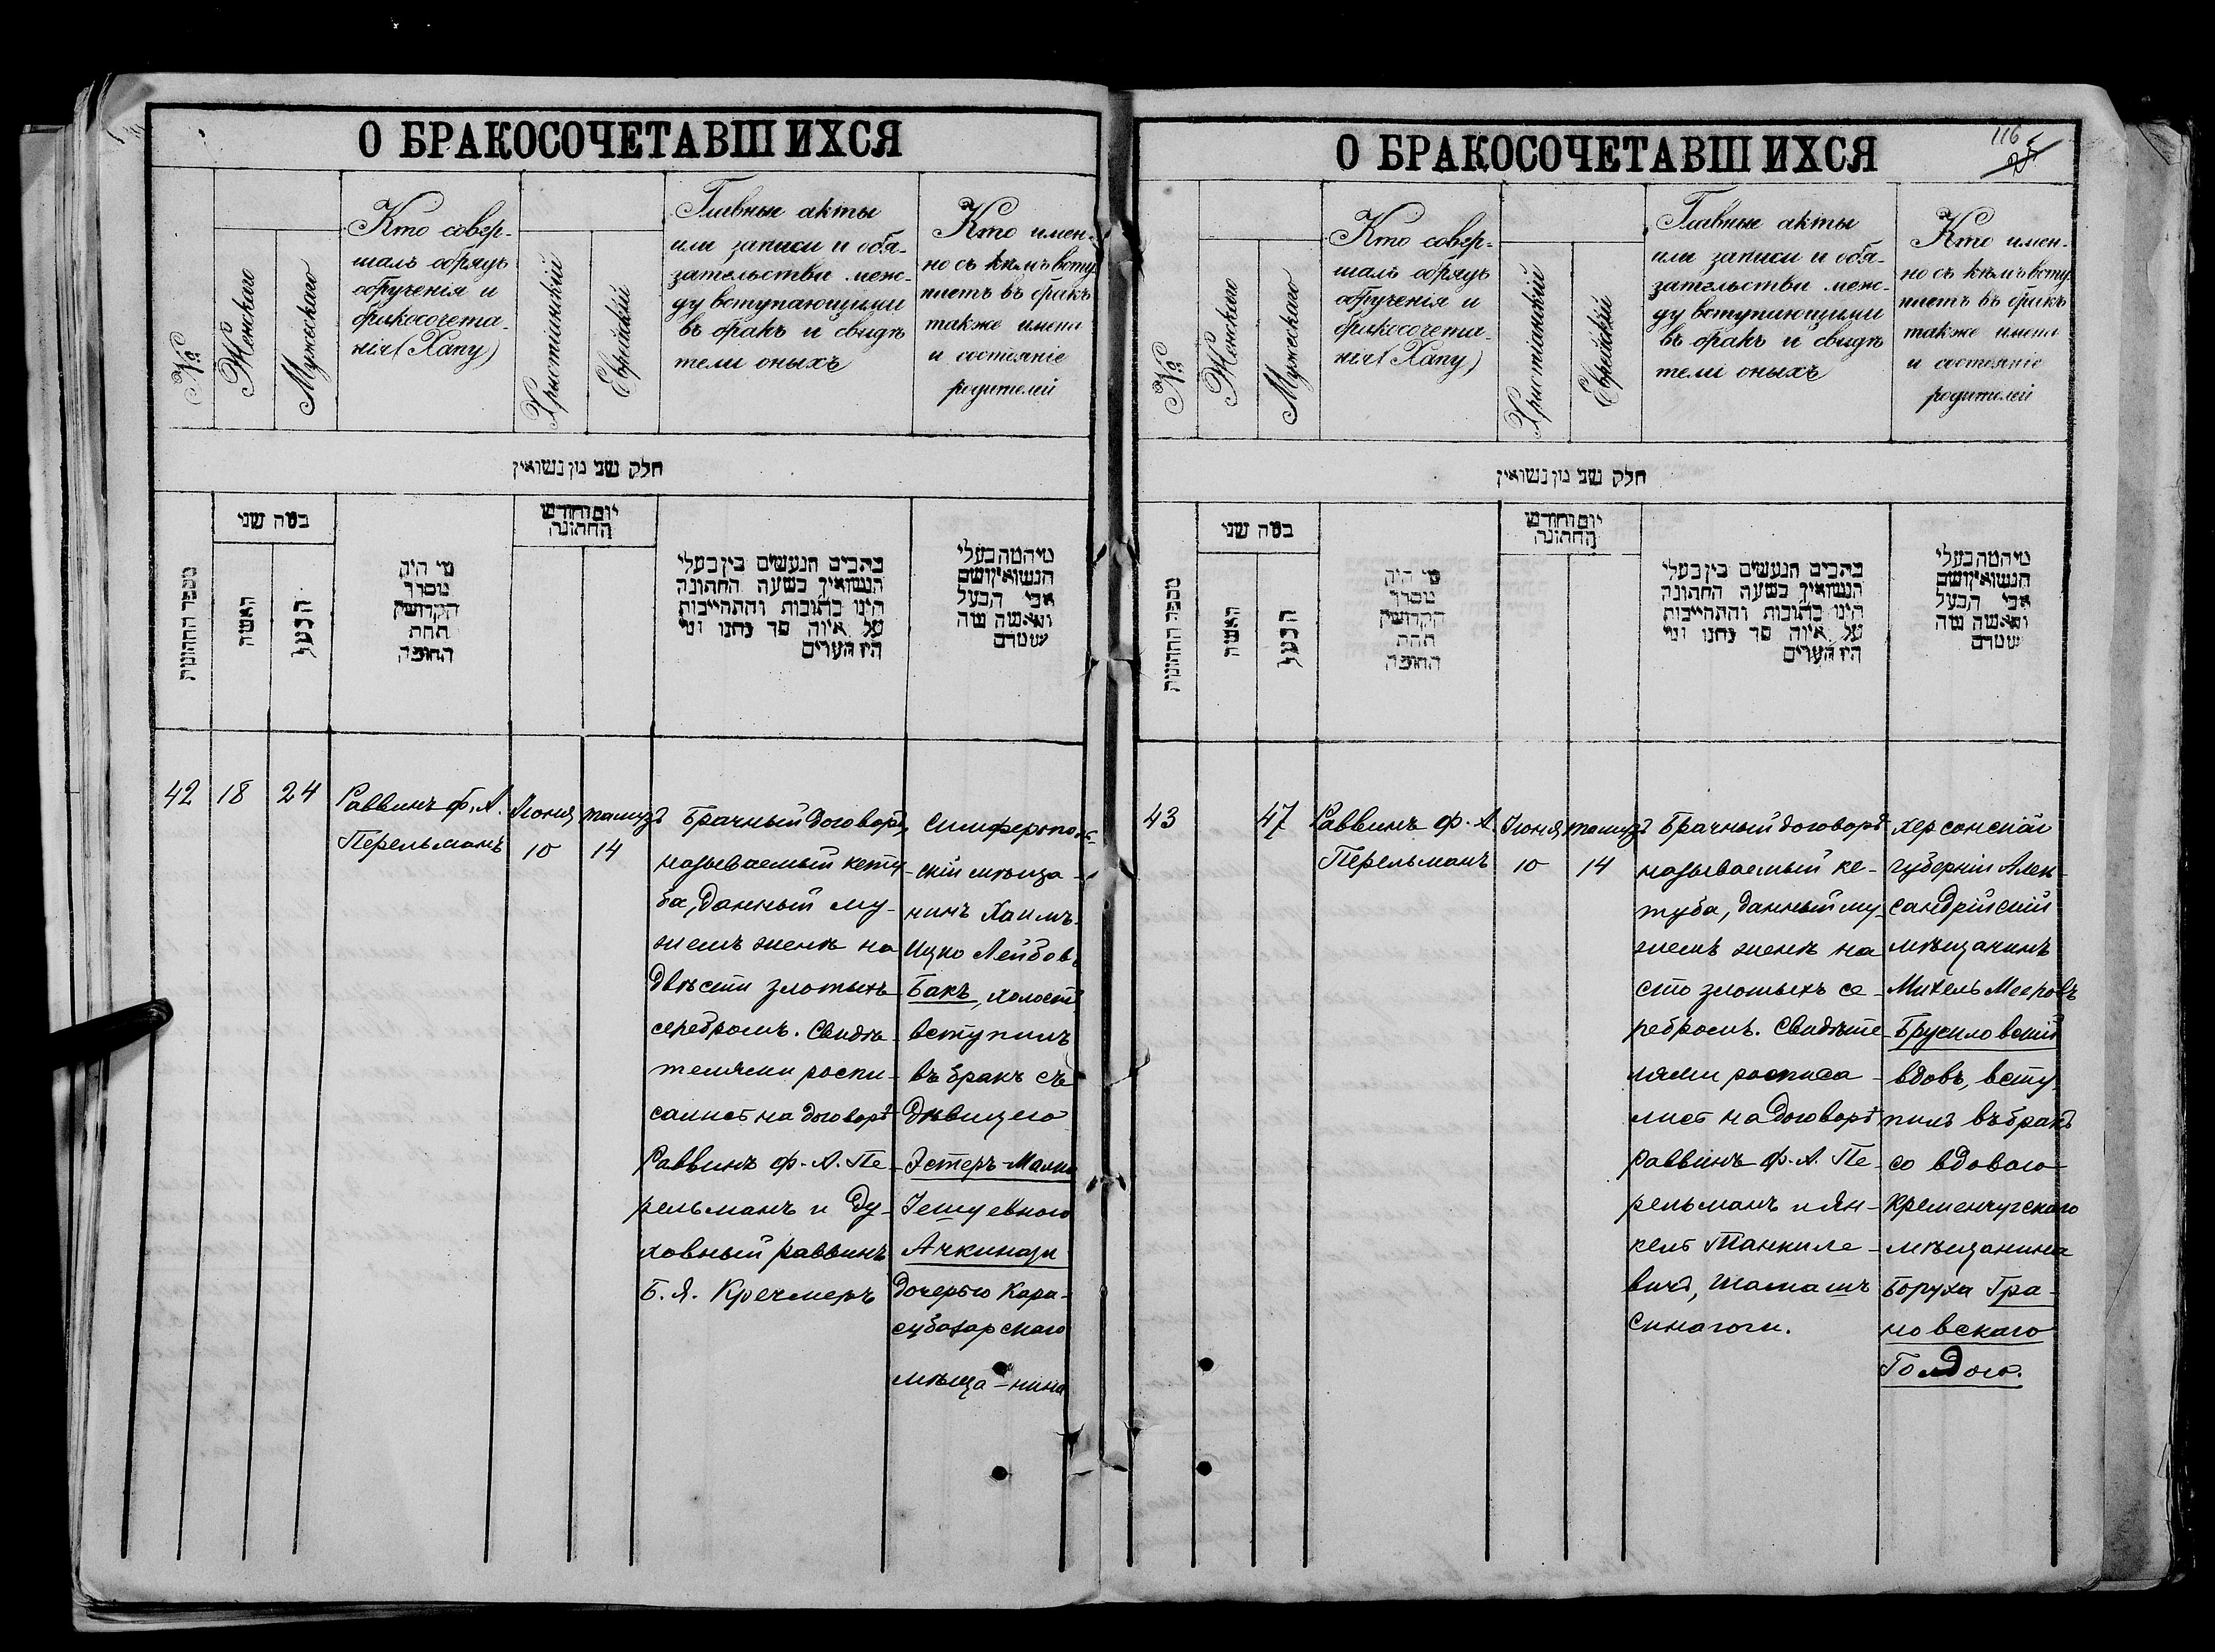 О БРАКОСОЧЕТАВШИХСЯ
№
Женскаго
Мужескаго
Кто совер-
шалъ обрядъ
обрученія и
бракосочета-
нія (Хапу)
Христіанскій
Еврейскій
Главные акты
или записи и обя-
зательства меж-
ду вступающими
въ бракъ и свидѣ
тели оныхъ
Кто имен-
но съ кѣмъ всту
паетъ въ бракъ
также имена
и состояніе
родителей
חלק שני מן נשואין
מספר החתונות
כמה שני
האשה
הבעל
מי היה
מסדר
הקדושין
תחת
החופה
יום וחודש
החתונה
כתבים הנעשים בין בעלי
הנשואין בשעה החתונה
היינו כתובות והתחייבות
על איזה סך נתנו ומי
היו העדים
מי המה בעלי
הנשואין ושם
אבי הבעל
והאשה ומה
שמדם
42
18
24
Раввинъ Ф. А.
Перельманъ
Іюня
10
тамузъ
14
Брачный договоръ,
называемый кету-
ба, данный му-
жемъ женѣ на
двѣсти злотыхъ
серебромъ. Свидѣ-
телями роспи-
сались на договорѣ
Раввинъ Ф. А. Пе-
рельманъ и Ду-
ховный раввинъ
Б. Я. Кречмеръ
Симферополь-
скій мѣща-
нинъ Хаимъ-
Ицко Лейбовъ
Бакъ, холостъ
вступилъ
въ бракъ съ
дѣвицею
Эстеръ-Малка
Іешуевною
Ачкинази
дочерью Кара-
субазарскаго
мѣща-нина
О БРАКОСОЧЕТАВШИХСЯ
116
25
№
Женскаго
Мужескаго
Кто совер-
шалъ обрядъ
обрученія и
бракосочета-
нія (Хапу)
Христіанскій
Еврейскій
Главные акты
или записи и обя-
зательства меж-
ду вступающими
въ бракъ и свидѣ
тели оныхъ
Кто имен-
но съ кѣмъ всту
паетъ въ бракъ
также имена
и состояніе
родителей
חלק שני מן נשואין
מספר החתונות
כמה שני
האשה
הבעל
מי היה
מסדר
הקדושין
תחת
החופה
יום וחודש
החתונה
כתבים הנעשים בין בעלי
הנשואין בשעה החתונה
היינו כתובות והתחייבות
על איזה סך נתנו ומי
היו העדים
מי המה בעלי
הנשואין ושם
אבי הבעל
והאשה ומה
שמדם
43
47
Раввинъ Ф. А.
Перельманъ
Іюня
10
тамузъ
14
Брачный договоръ
называемый ке-
туба, данный му-
жемъ женѣ на
сто злотыхъ се-
ребромъ. Свидѣте-
лями росписа-
лись на договорѣ
Раввинъ Ф. А. Пе-
рельманъ и Ян-
кель Танкиле-
вичъ, шамашъ
синагоги.
Херсонской
губерніи Алек-
сандрійскій
мѣщанинъ
Михель Мееровъ
Брусиловскій
вдовъ, всту
пилъ въ бракъ
со вдовою
Кременчугскаго
мѣщанина
Боруха Гра-
новскаго
Голдою.